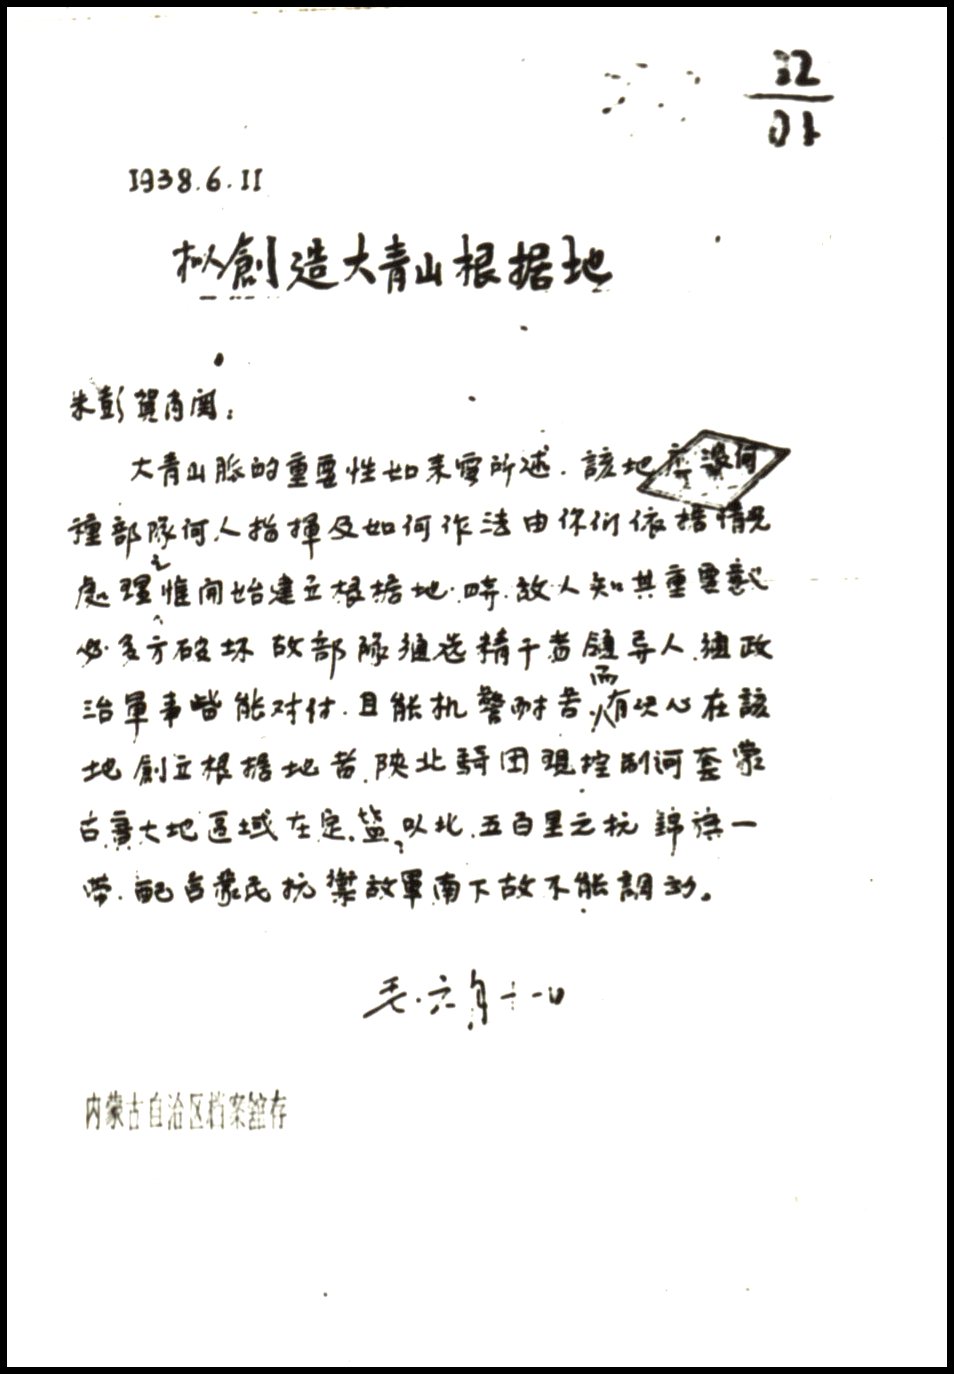 1938.6.11
拟創造大青山根据地
朱彭賀肖関：
大青山脉的重要性如来電所述．該地應派何
種部隊何人指揮及如何作法由你们依据情况
處理之惟開始建立根据地時．敌人知其重要意
必多方破坏 故部隊須选精干者領导人．須政
治軍事皆能对付．且能机警耐苦．而有决心在該
地創立根据地者．陝北騎团現控制河套蒙
古廣大地區域在定．盐．以北．五百里之杭錦旗一
帶．配合蒙民抗禦敌軍南下故不能調動。
毛．六月十一日
内蒙古自治区档案館存